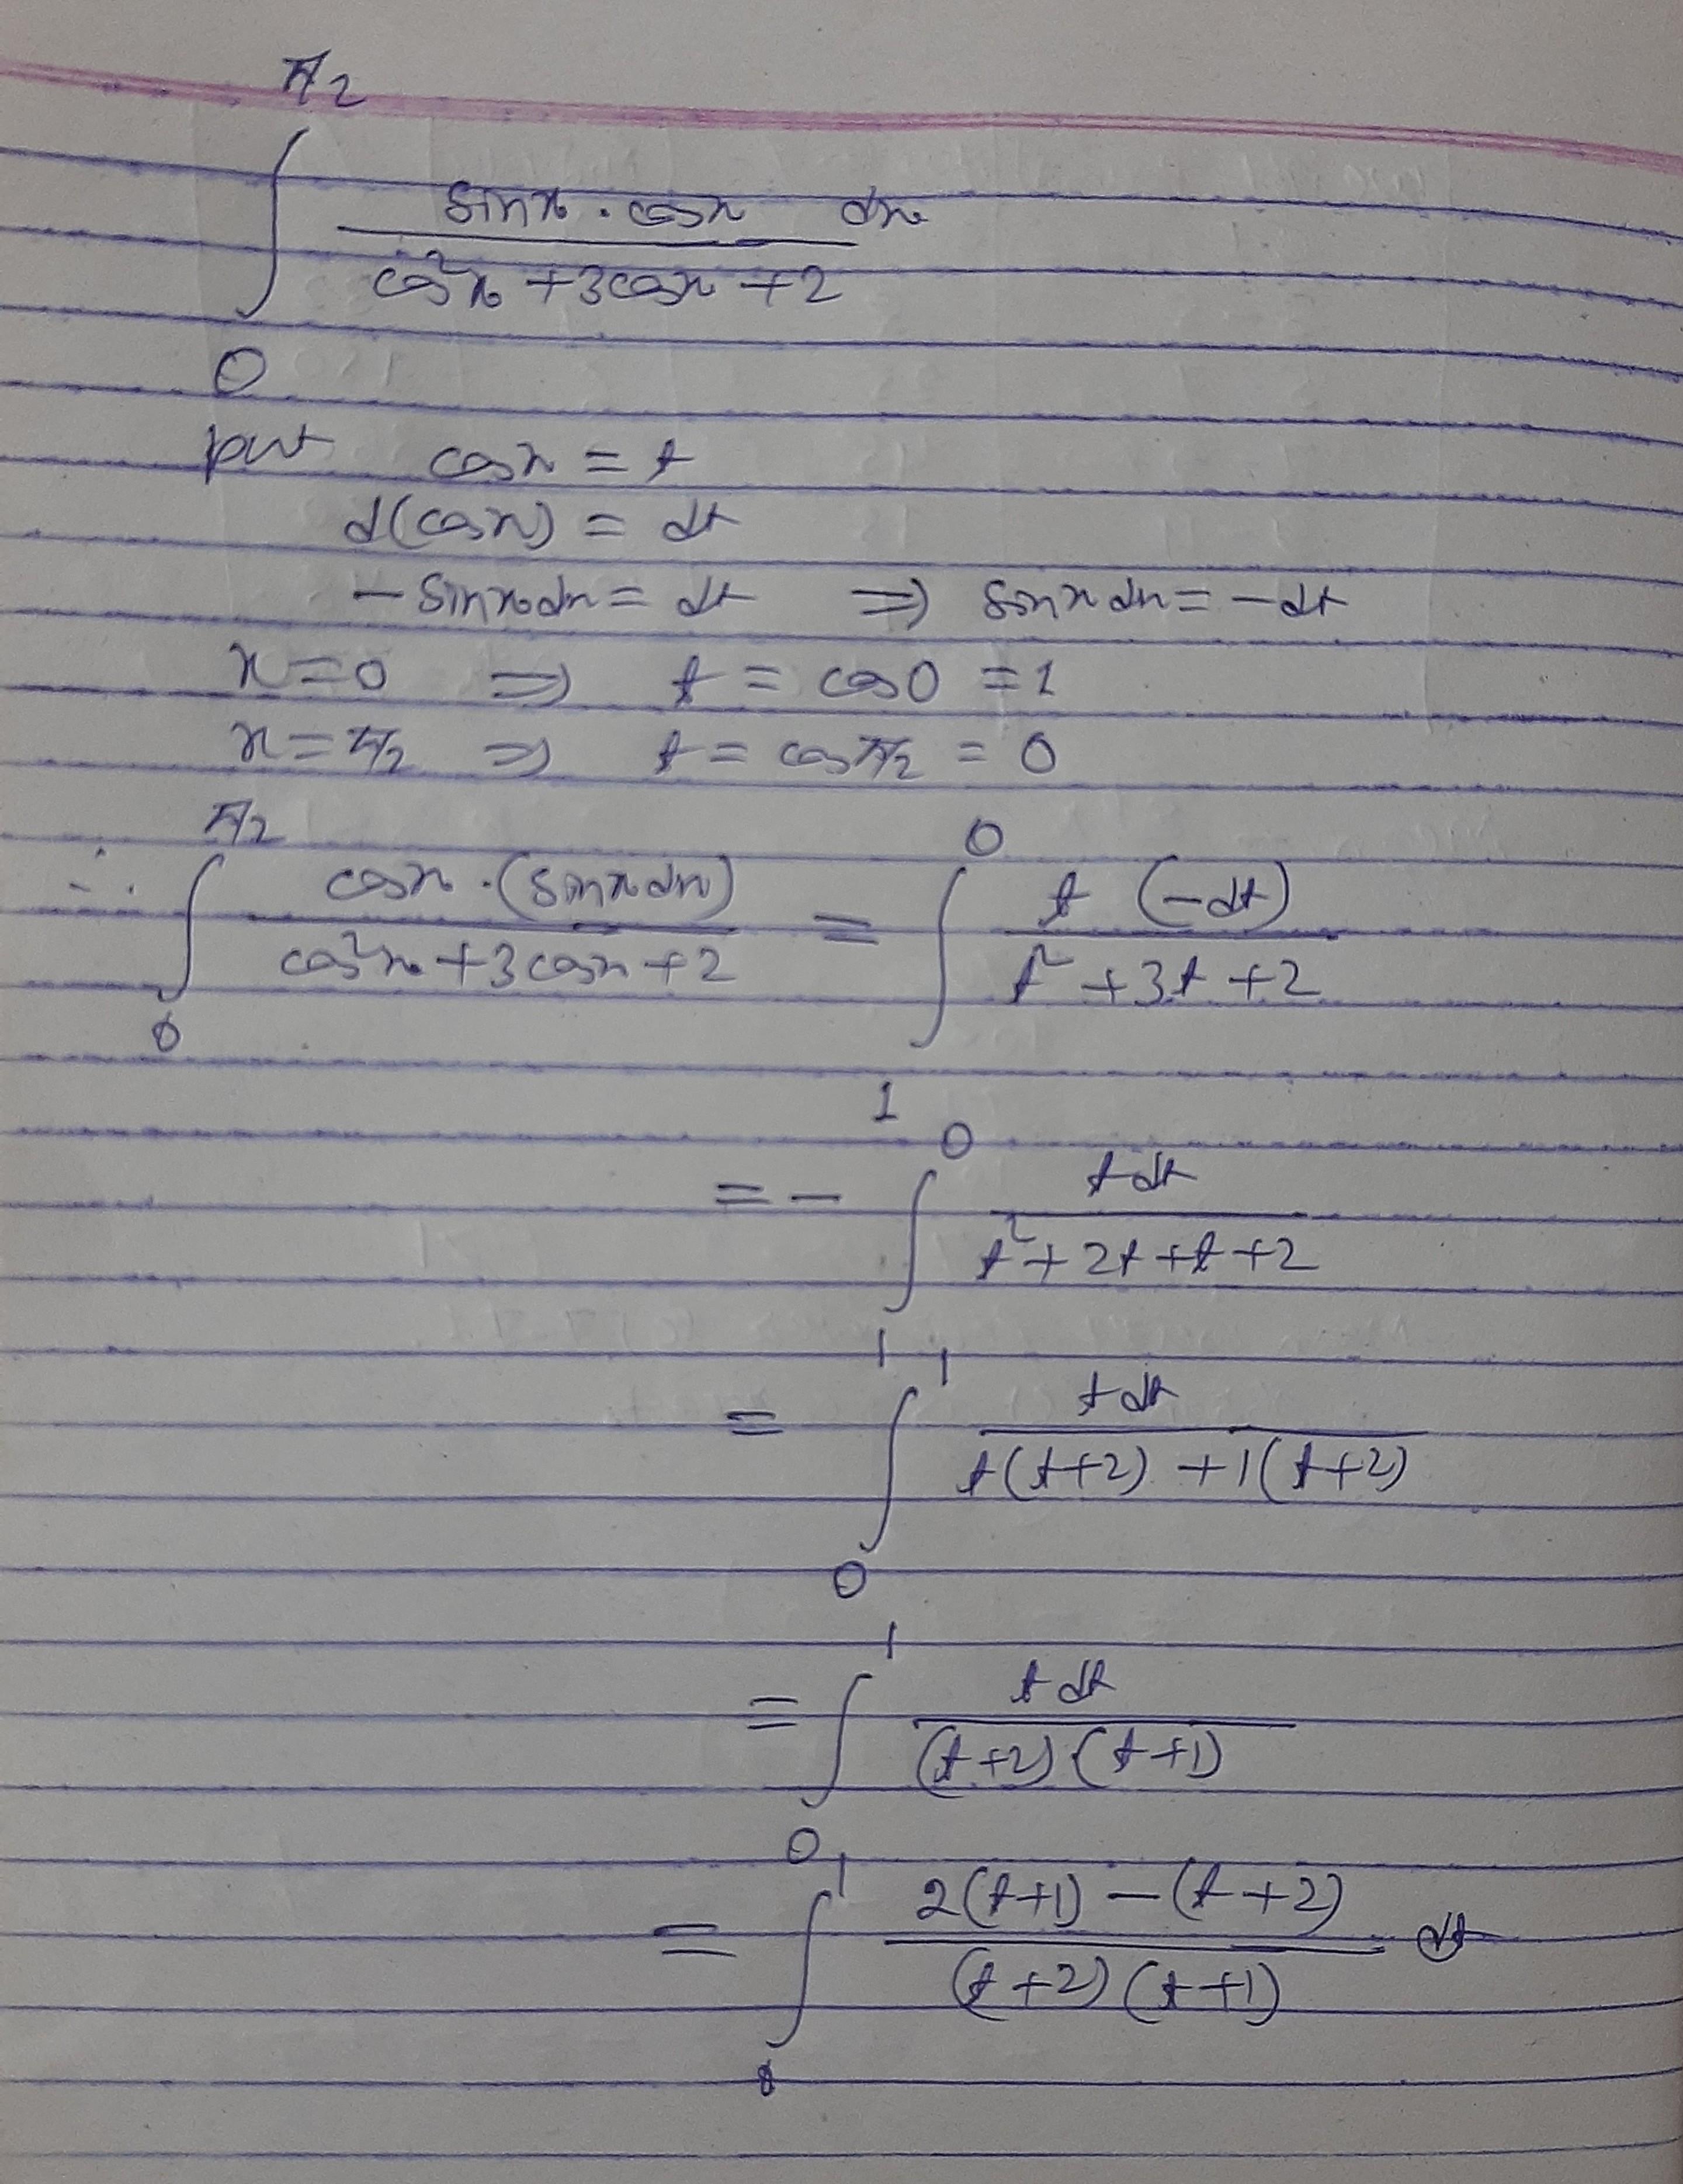 ∫₀^{π/2} (sinx · cosx dx)/(cos²x + 3cosx + 2)
put cosx = t
d(cosx) = dt
- sinx dx = dt ⇒ sinx dx = -dt
x = 0 ⇒ t = cos0 = 1
x = π/2 ⇒ t = cosπ/2 = 0
∴ ∫₀^{π/2} (cosx · (sinx dx))/(cos²x + 3cosx + 2) = ∫₁⁰ (t (-dt))/(t² + 3t + 2)
= - ∫₁⁰ (t dt)/(t² + 2t + t + 2)
= ∫₀¹ (t dt)/(t(t+2) + 1(t+2))
= ∫₀¹ (t dt)/((t+2)(t+1))
= ∫₀¹ (2(t+1) - (t+2))/((t+2)(t+1)) dt